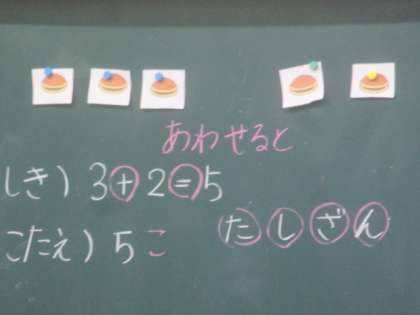 あわせると
しき) 3+2=5
こたえ) 5こ
たしざん